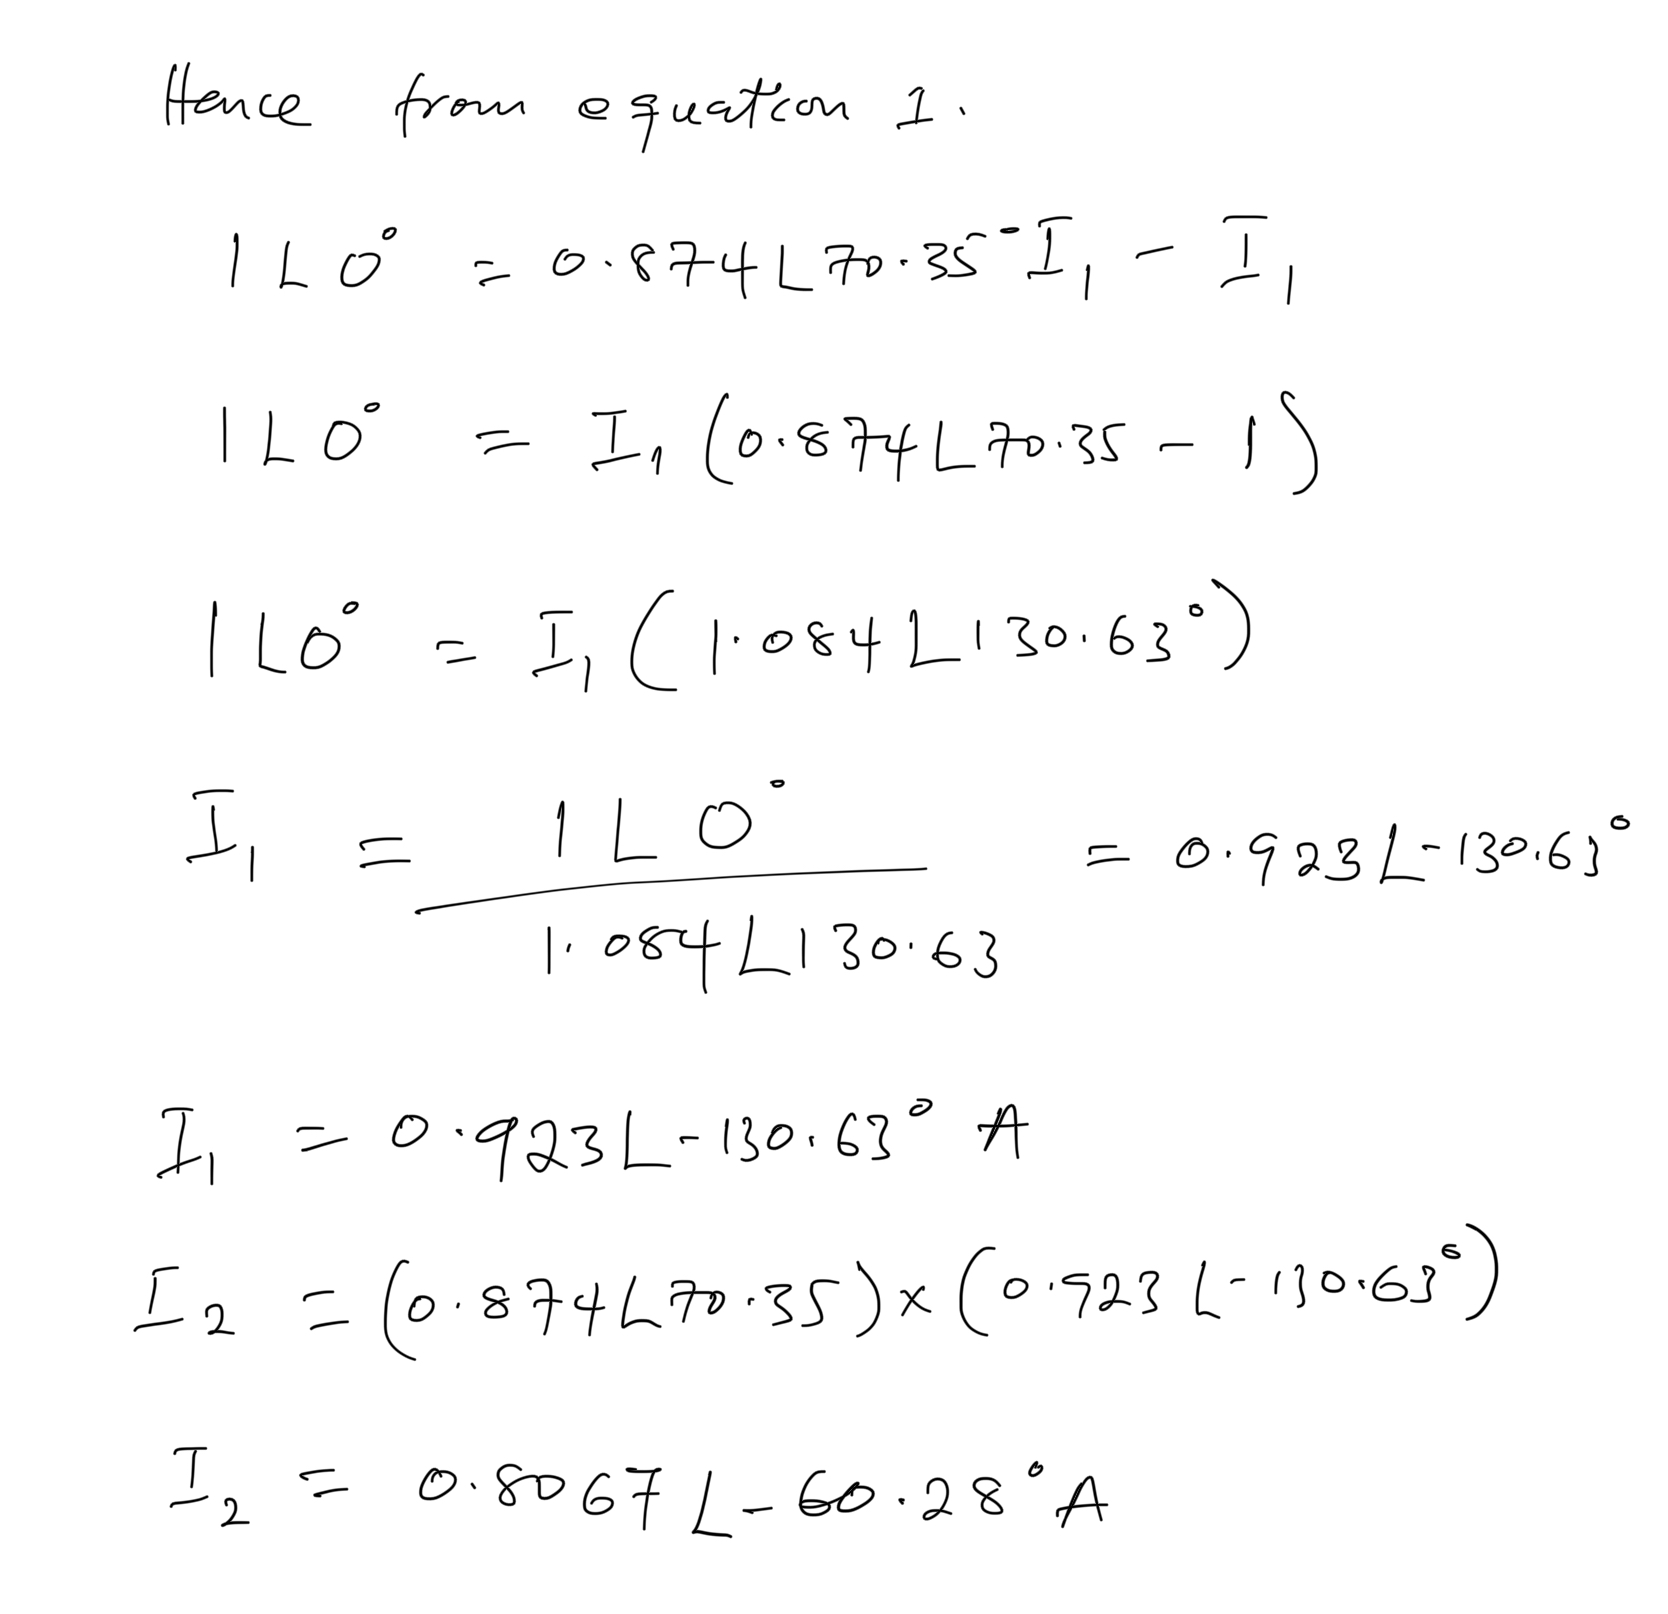 Hence from equation 1.
1∠0° = 0.874∠70.35° I₁ - I₁
1∠0° = I₁ (0.874∠70.35 - 1)
1∠0° = I₁ (1.084∠130.63°)
I₁ = 1∠0° / 1.084∠130.63 = 0.923∠-130.63°
I₁ = 0.923∠-130.63° A
I₂ = (0.874∠70.35) × (0.923∠-130.63°)
I₂ = 0.8067∠-60.28° A